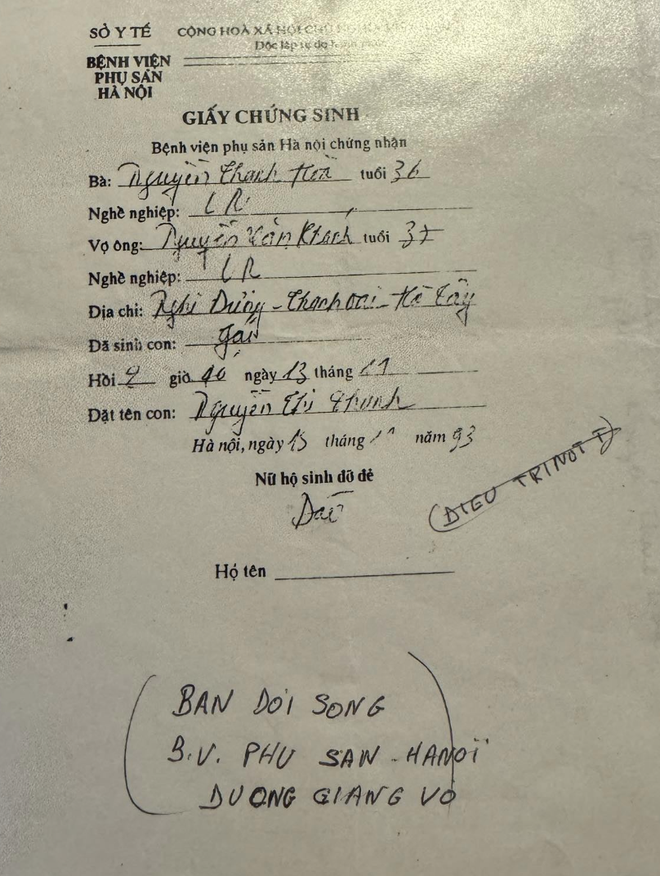 SỞ Y TẾ
CỘNG HOÀ XÃ HỘI CHỦ
Độc lập tự do
BỆNH VIỆN
PHỤ SẢN
HÀ NỘI
GIẤY CHỨNG SINH
Bệnh viện phụ sản Hà nội chứng nhận
Bà: Nguyễn Thanh Hoà tuổi 36
Nghề nghiệp: LR
Vợ ông: Nguyễn Văn Khanh tuổi 37
Nghề nghiệp: LR
Địa chỉ: Nghi Dưỡng - Thanh Oai - Hà Tây
Đã sinh con: gái
Hồi 9 giờ 40 ngày 13 tháng 11
Đặt tên con: Nguyễn Thị Thanh
Hà nội, ngày 13 tháng 11 năm 93
Nữ hộ sinh đỡ đẻ
Họ tên
(DIEU TRI NOI T)
BAN DOI SONG
B.V. PHU SAN - HANOI
DUONG GIANG VO